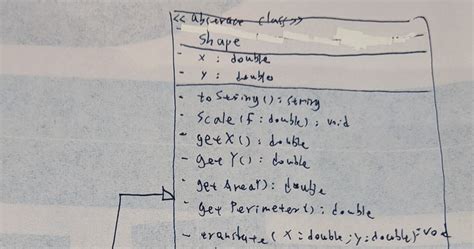 <<abstrace class>>
Shape
- x : double
- Y : double
- toString() : string
- Scale(f : double) : void
- getX() : double
- get Y() : double
- get Area() : double
- get Perimeter() : double
- translate ( X : double ; y : double) = void